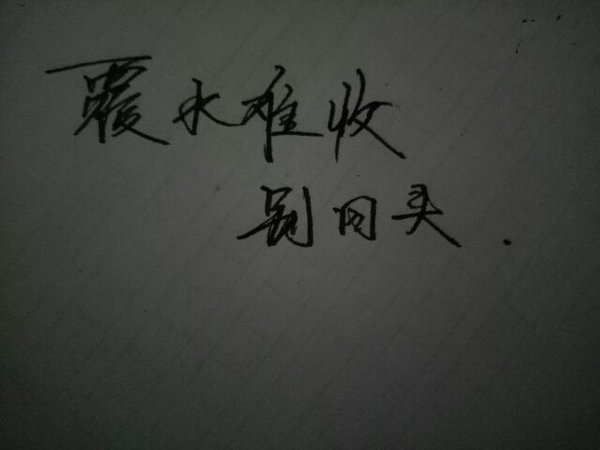 覆水难收
别回头.